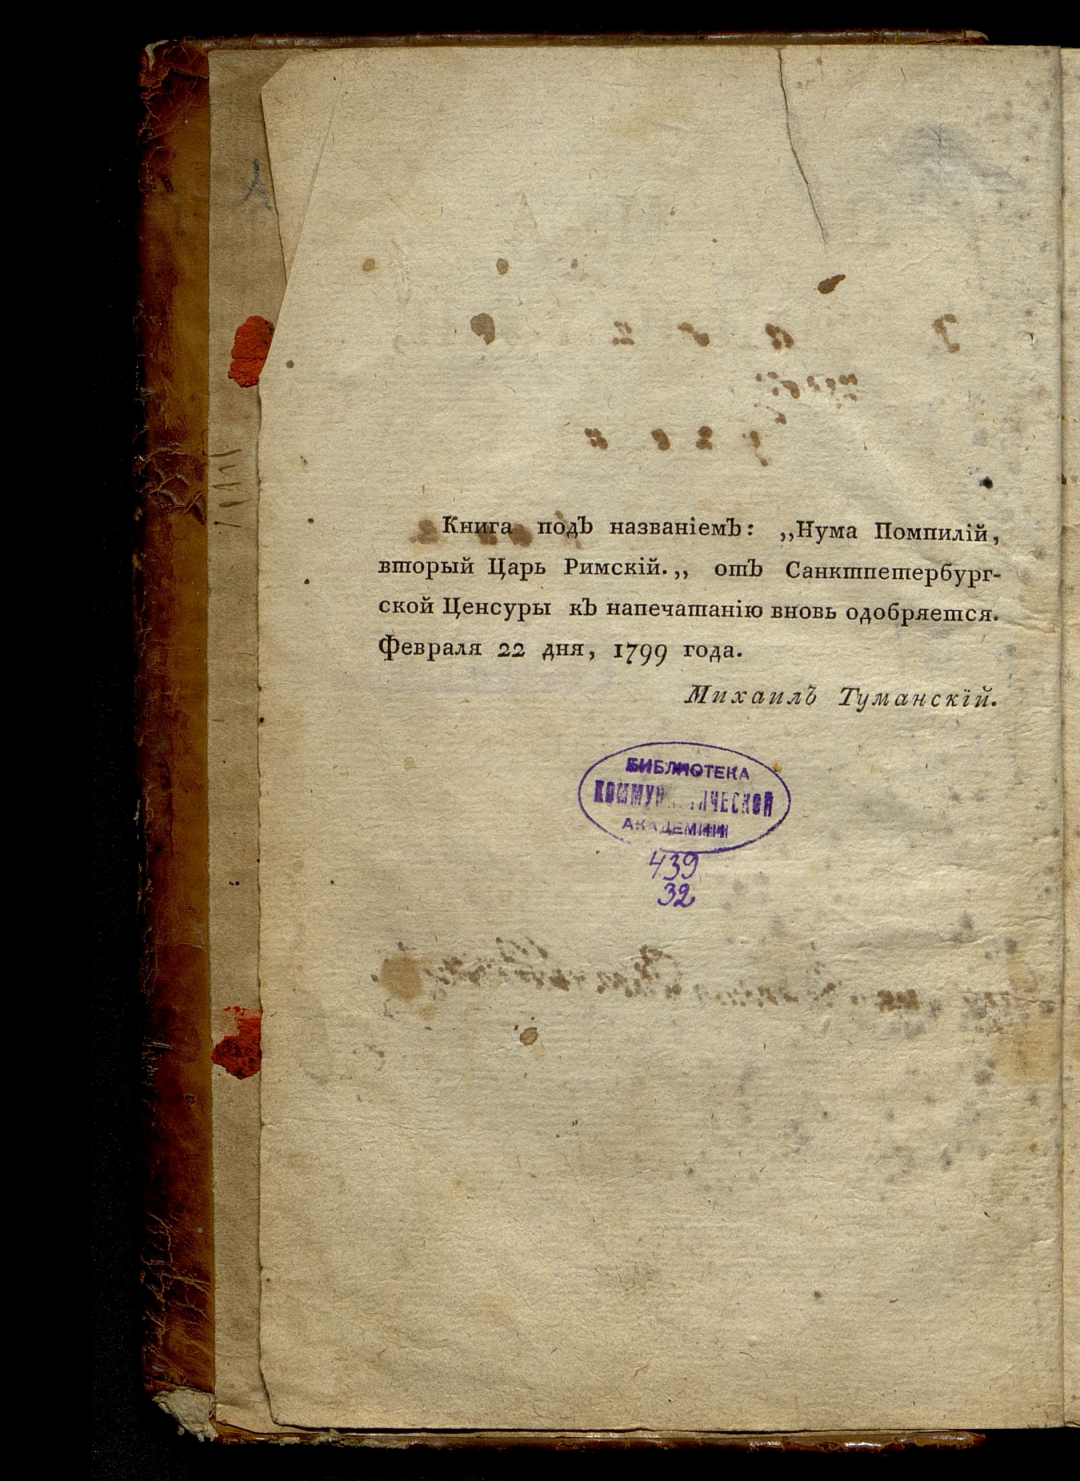 Книга подъ названіемъ: ,,Нума Помпилій,
вторый Царь Римскій.,, отъ Санктпетербург-
ской Ценсуры къ напечатанію вновь одобряется.
Февраля 22 дня, 1799 года.
Михаилъ Туманскій.
БИБЛИОТЕКА
КОММУНИСТИЧЕСКОЙ
АКАДЕМИИ
439
32